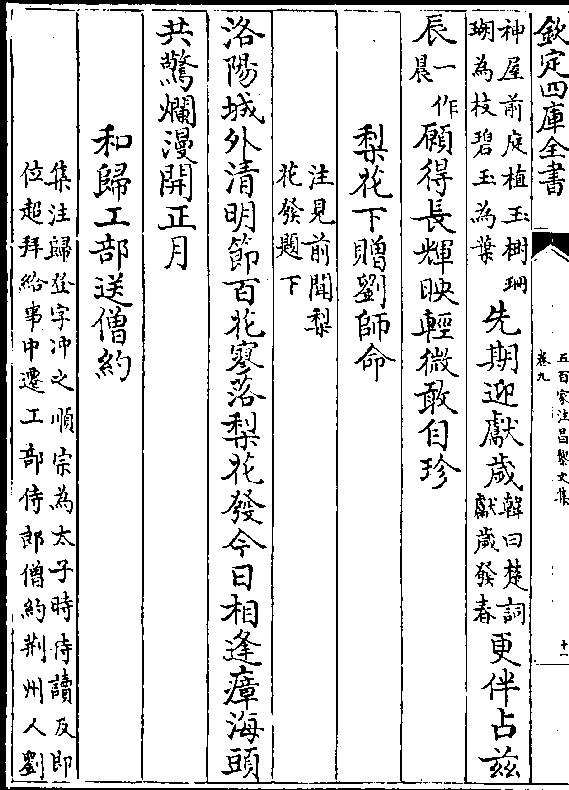 欽定四庫全書
五百家注昌黎文集
卷九
十一
神屋前庭植玉樹珊
瑚為枝碧玉為葉
先期迎獻歲
韓曰楚詞
獻歲發春
更伴占兹
辰
一作
晨
願得長輝映輕微敢自珍
梨花下贈劉師命
注見前聞梨
花發題下
洛陽城外清明節百花寥落梨花發今日相逢瘴海頭
共驚爛漫開正月
和歸工部送僧約
集注歸登字沖之順宗為太子時侍讀及即
位超拜給事中遷工部侍郎僧約荆州人劉